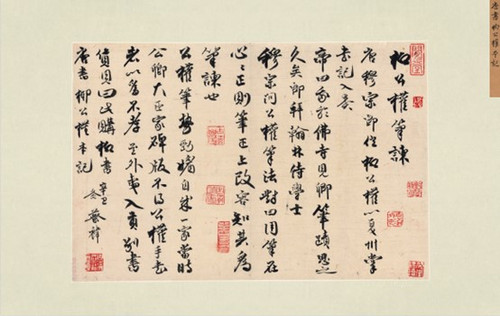 唐書柳公權本記
柳公權筆諫
唐穆宗即位柳公權以夏州掌
書記入奏
帝曰我於佛寺見卿筆蹟思之
久矣即拜翰林侍學士
穆宗問公權筆法對曰用筆在
心心正則筆正上改容知其為
筆諫也
公權筆勢勁媚自成一家當時
公卿大臣家碑版不得公權手書
者以為不孝至外夷入貢別書
貨貝曰此購柳書
唐書柳公權本記
辛丑冬